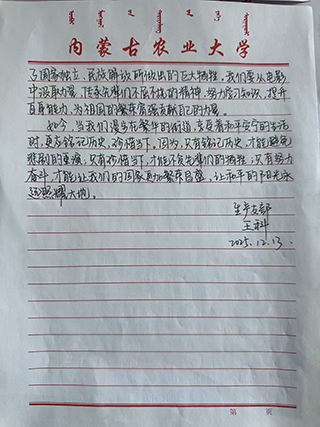 内蒙古农业大学
了国家独立、民族解放所做出的巨大牺牲。我们要从电影
中汲取力量，传承先辈们不屈不挠的精神，努力学习知识，提升
自身能力，为祖国的繁荣富强贡献自己的力量。
如今，当我们漫步在繁华的街道，享受着和平安宁的生活
时，更要铭记历史，珍惜当下。因为，只有铭记历史，才能避免
悲剧的重演；只有珍惜当下，才能不负先辈们的牺牲；只有努力
奋斗，才能让我们的国家更加繁荣昌盛，让和平的阳光永
远照耀大地。
生产支部
王科
2025.12.13.
第 页